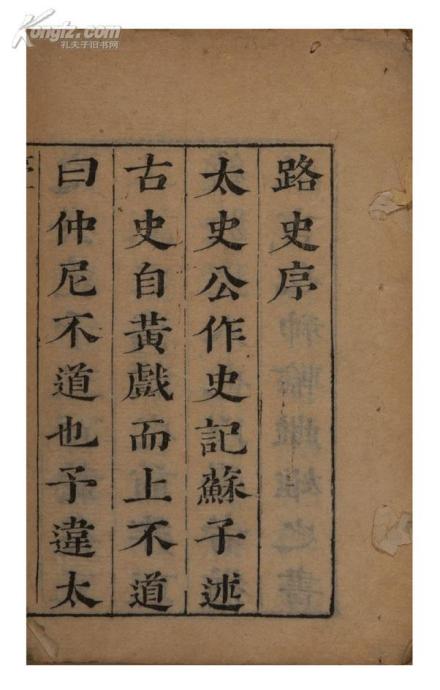 Kongfz.com
孔夫子旧书网
路史序
太史公作史記蘇子述
古史自黃戲而上不道
曰仲尼不道也予違太